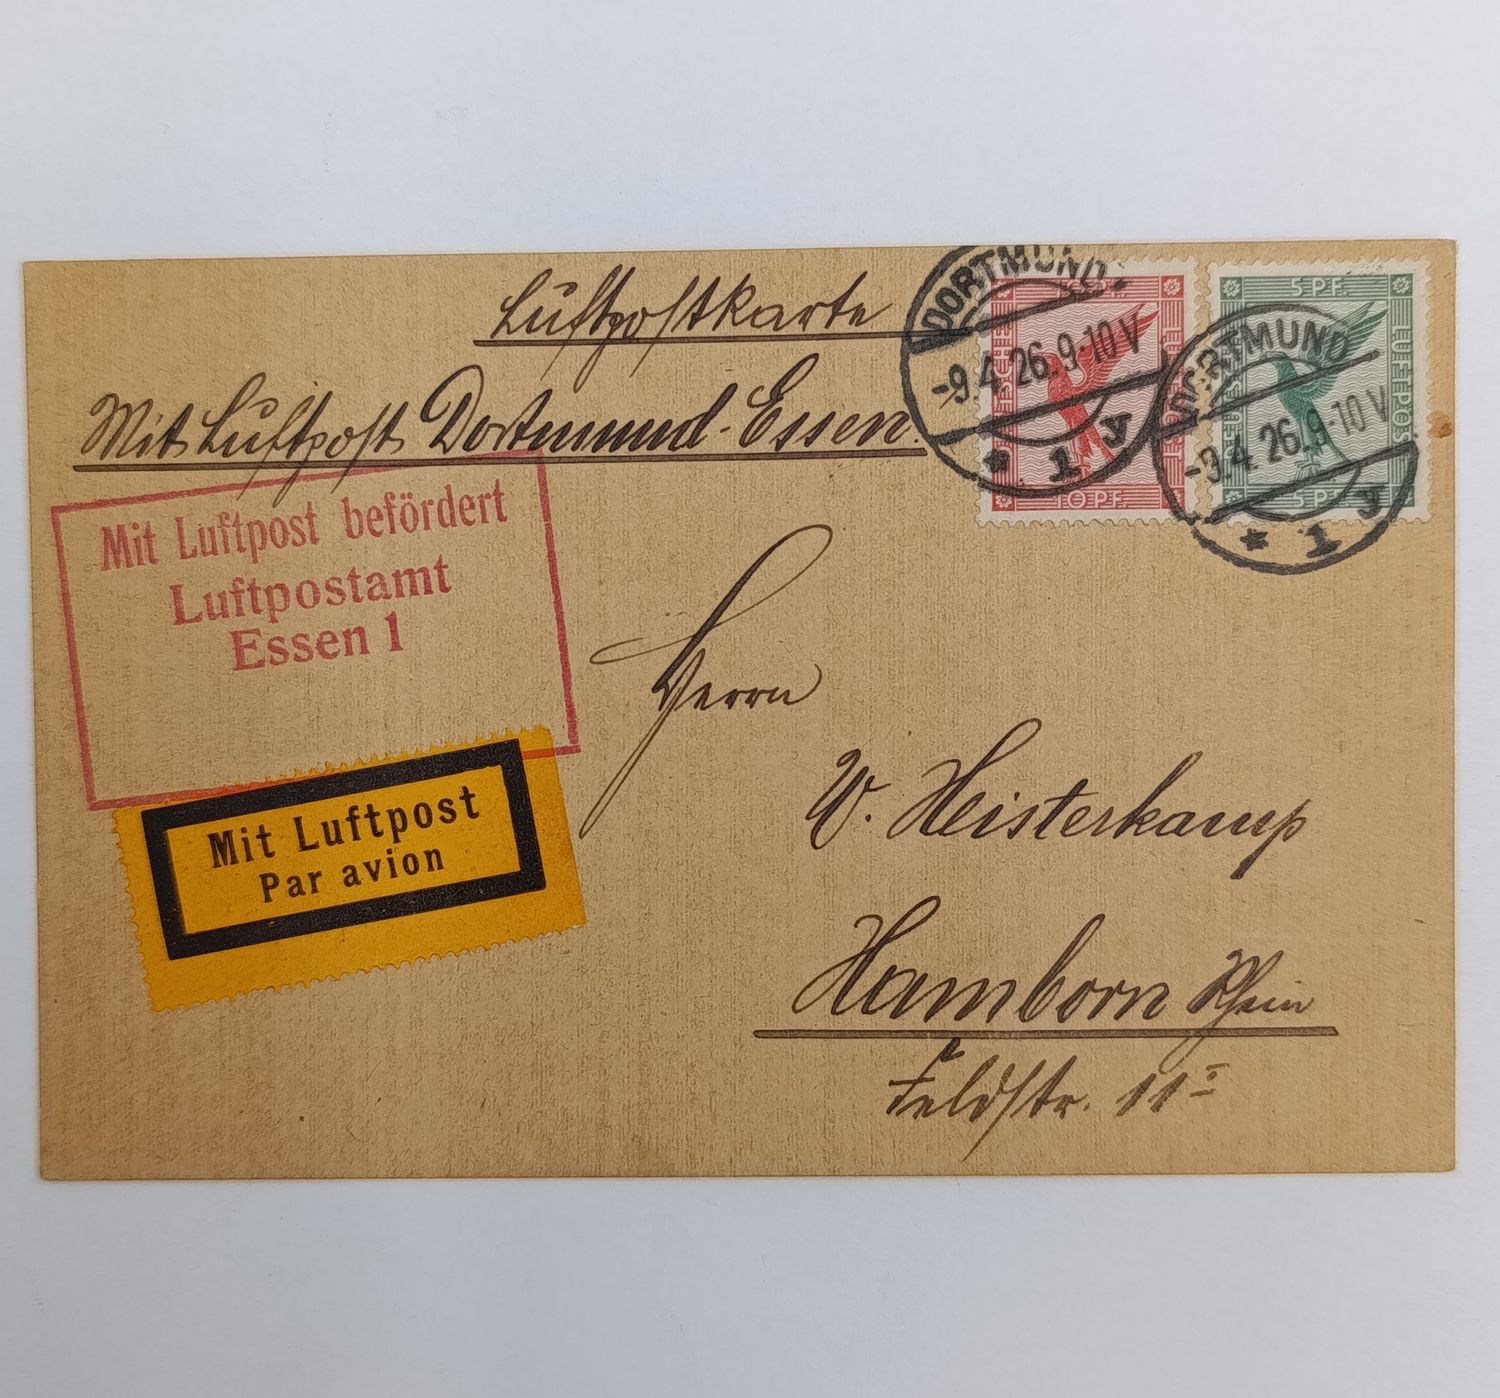 Luftpostkarte
Mit Luftpost Dortmund-Essen.
DORTMUND
-9.4.26.9-10V
* 1 y
10 PF.
DORTMUND
-9.4.26.9-10V
* 1 y
5 PF.
LUFTPOST
5 PF
Mit Luftpost befördert
Luftpostamt
Essen 1
Mit Luftpost
Par avion
Herrn
W. Heisterkamp
Hamborn Rhein
Feldstr. 11